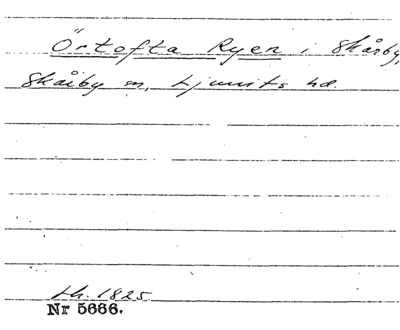 Örtofta Ryen i Skårby,
Skårby sn, Ljunits hd.
Lh. 1825
Nr 5666.